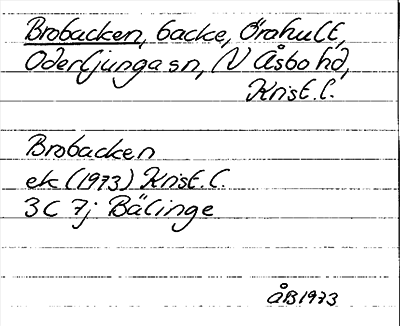 Brobacken, backe, Örahult,
Oderljunga sn, N Åsbo hd,
Krist. l.
Brobacken
ek (1973) Krist. l.
3C 7j Bälinge
ÅB 1973